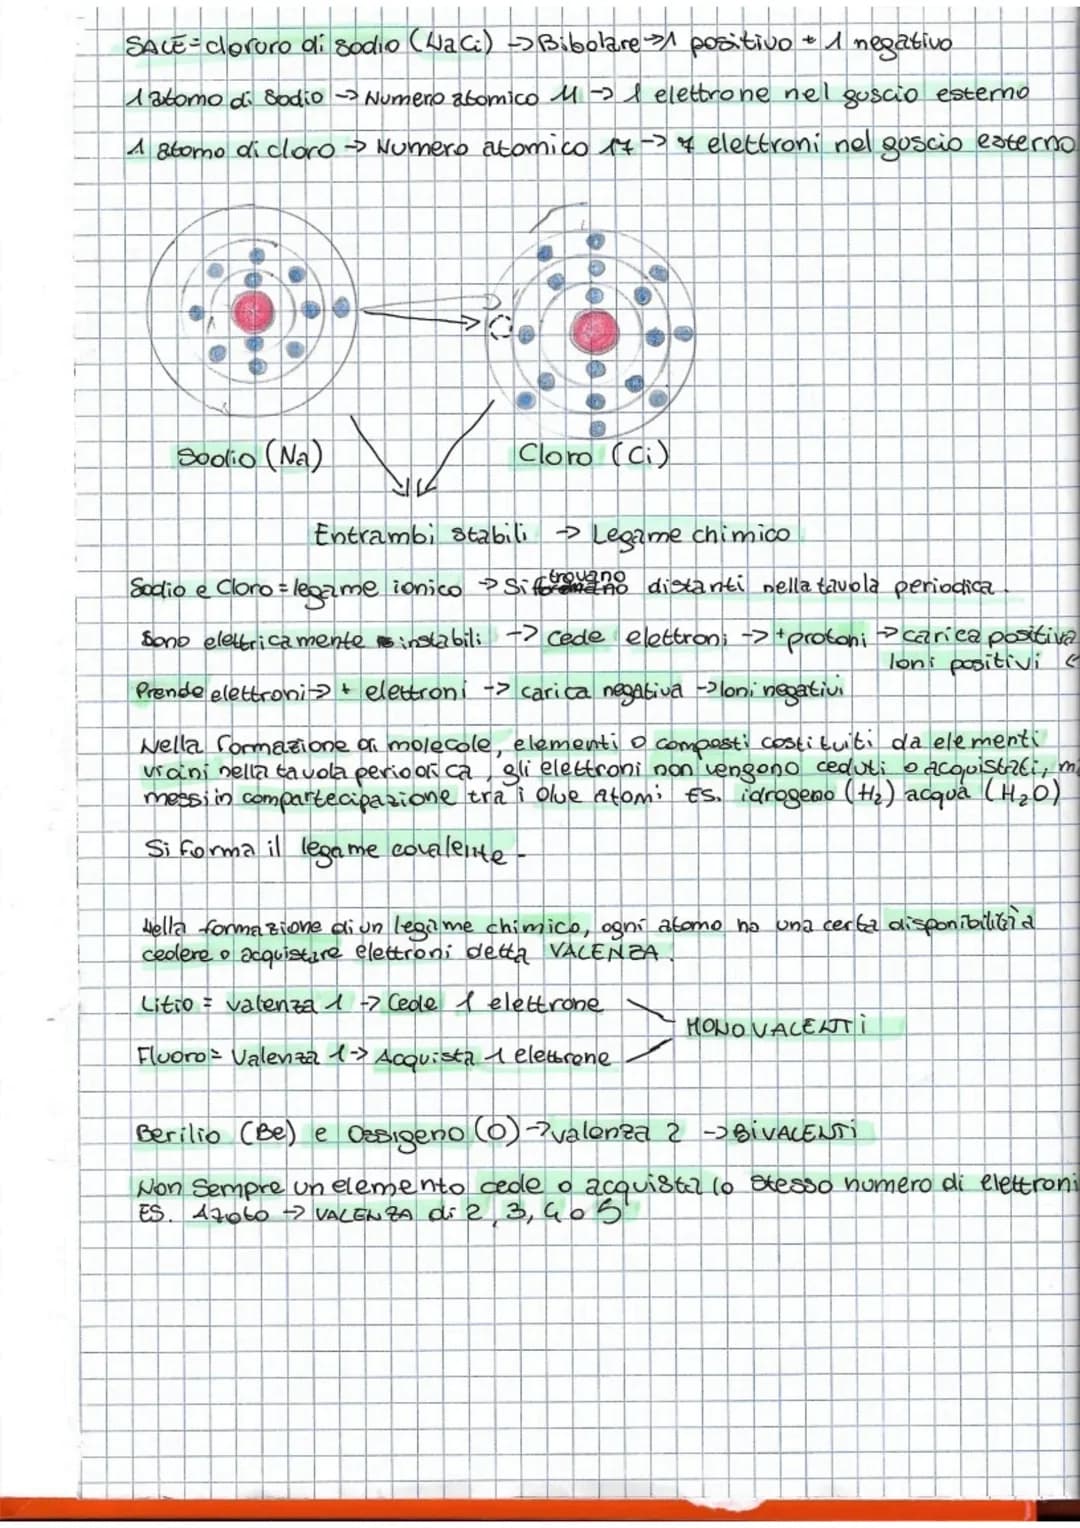 SALE = cloruro di sodio (NaCi) -> Bibolare -> 1 positivo + 1 negativo
1 atomo di Sodio -> Numero atomico 11 -> 1 elettrone nel guscio esterno
1 atomo di cloro -> Numero atomico 17 -> 7 elettroni nel guscio esterno
Sodio (Na)
Cloro (Ci)
Entrambi stabili -> Legame chimico
Sodio e Cloro = legame ionico -> Si trovano distanti nella tavola periodica.
Sono elettricamente instabili -> cede elettroni -> + protoni -> carica positiva
Ioni positivi <
Prende elettroni -> + elettroni -> carica negativa -> Ioni negativi
Nella formazione di molecole, elementi o composti costituiti da elementi
vicini nella tavola periodica, gli elettroni non vengono ceduti o acquistati, ma
messi in compartecipazione tra i due atomi ES. idrogeno (H₂) acqua (H₂O)
Si forma il legame covalente -
Nella formazione di un legame chimico, ogni atomo ha una certa disponibilità a
cedere o acquistare elettroni detta VALENZA.
Litio = valenza 1 -> Cede 1 elettrone
MONOVALENTI
Fluoro = Valenza 1 -> Acquista 1 elettrone
Berilio (Be) e Ossigeno (O) -> valenza 2 -> BIVALENTI
Non Sempre un elemento cede o acquista lo stesso numero di elettroni
ES. Azoto -> VALENZA di 2, 3, 4 o 5